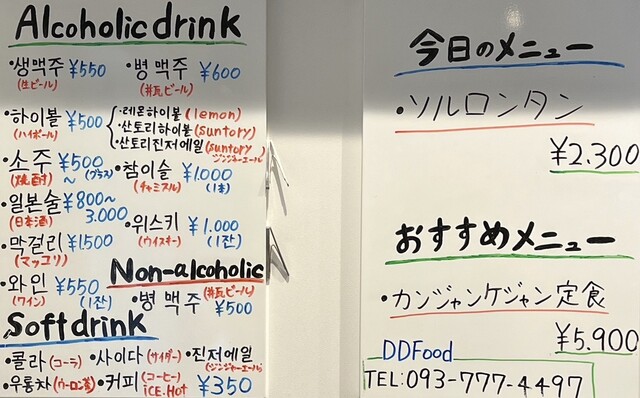 Alcoholic drink
・생맥주 ¥550 ・병맥주 ¥600
(生ビール) (井瓦ビール)
・하이볼 ¥500 ・레몬하이볼 (lemon)
(ハイボール) ・산토리하이볼 (suntory)
・산토리진저에일 (suntory ジンジャーエール)
・소주 ¥500 ~ (グラス) ・참이슬 ¥1,000
(焼酎) (チャミスル) (1本)
・일본술 ¥800~
(日本酒) 3.000 ・위스키 ¥1.000
・막걸리 ¥1500 (ウイスキー) (1잔)
(マッコリ)
・와인 ¥550
(ワイン) (1잔)
Non-alcoholic
・병맥주 (井瓦ビール) ¥500
Soft drink
・콜라 (コーラ) ・사이다 (サイダー) ・진저에일
(ジンジャーエール)
・우롱차 (ウーロン茶) ・커피 (コーヒー) ¥350
ICE.Hot
今日のメニュー
・ソルロンタン
¥2.300
おすすめメニュー
・カンジャンケジャン定食
¥5.900
DDFood
TEL:093-777-4497